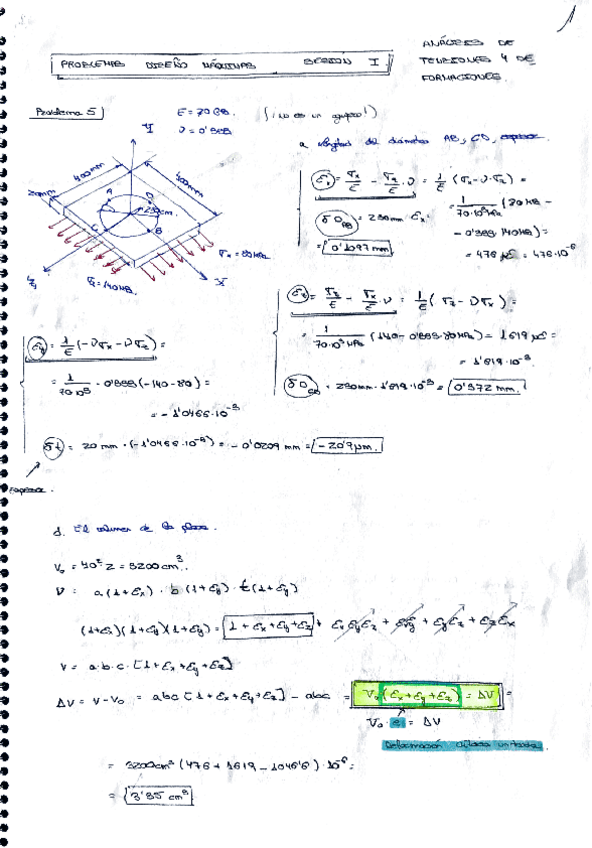 1
ANÁLISIS DE
TENSIONES Y DE
FORMACIONES.
PROBLEMAS DISEÑO MÁQUINAS SESIÓN I
Problema 5
E = 70 GPa. (¡no es un agujero!)
ν = 0'333
a. longitud del diámetro AB, CD, espesor.
y
400mm
400mm
20mm
A
D
C
B
σx = 80 MPa
σz = 140 MPa.
x
z
εx = σx/E - σz/E · ν = 1/E (σx - ν·σz) =
= 1/70·10³MPa (80 MPa -
- 0'333 · 140 MPa) =
= 476 με = 476·10⁻⁶
δD AB = 230mm · εx =
= 0'1097 mm
εz = σz/E - σx/E · ν = 1/E (σz - νσx) =
= 1/70·10³ MPa (140 - 0'333·80 MPa) = 1619 με =
= 1'619·10⁻³.
δD CD = 230mm · 1'619·10⁻³ = 0'372 mm.
εy = 1/E (-νσx - νσz) =
= 1/70·10³ · 0'333 (-140-80) =
= -1'0466·10⁻³
δt = 20 mm · (-1'0466·10⁻³) = -0'0209 mm = -20'9 μm.
Espesor.
d. El volumen de la placa.
V₀ = 40²·2 = 3200 cm³.
V = a(1+εx) · b(1+εy) · t(1+εy)
(1+εx)(1+εy)(1+εy) = 1 + εx + εy + εz + εxεyεz + εxεy + εyεz + εzεx
V = a·b·c·[1 + εx + εy + εz]
ΔV = V - V₀ = abc [1 + εx + εy + εz] - abc = V₀ (εx + εy + εz) = ΔV =
V₀ · e = ΔV
Deformación cúbica unitaria.
= 3200cm³ (476 + 1619 - 1046'6) · 10⁻⁶ =
= 3'35 cm³